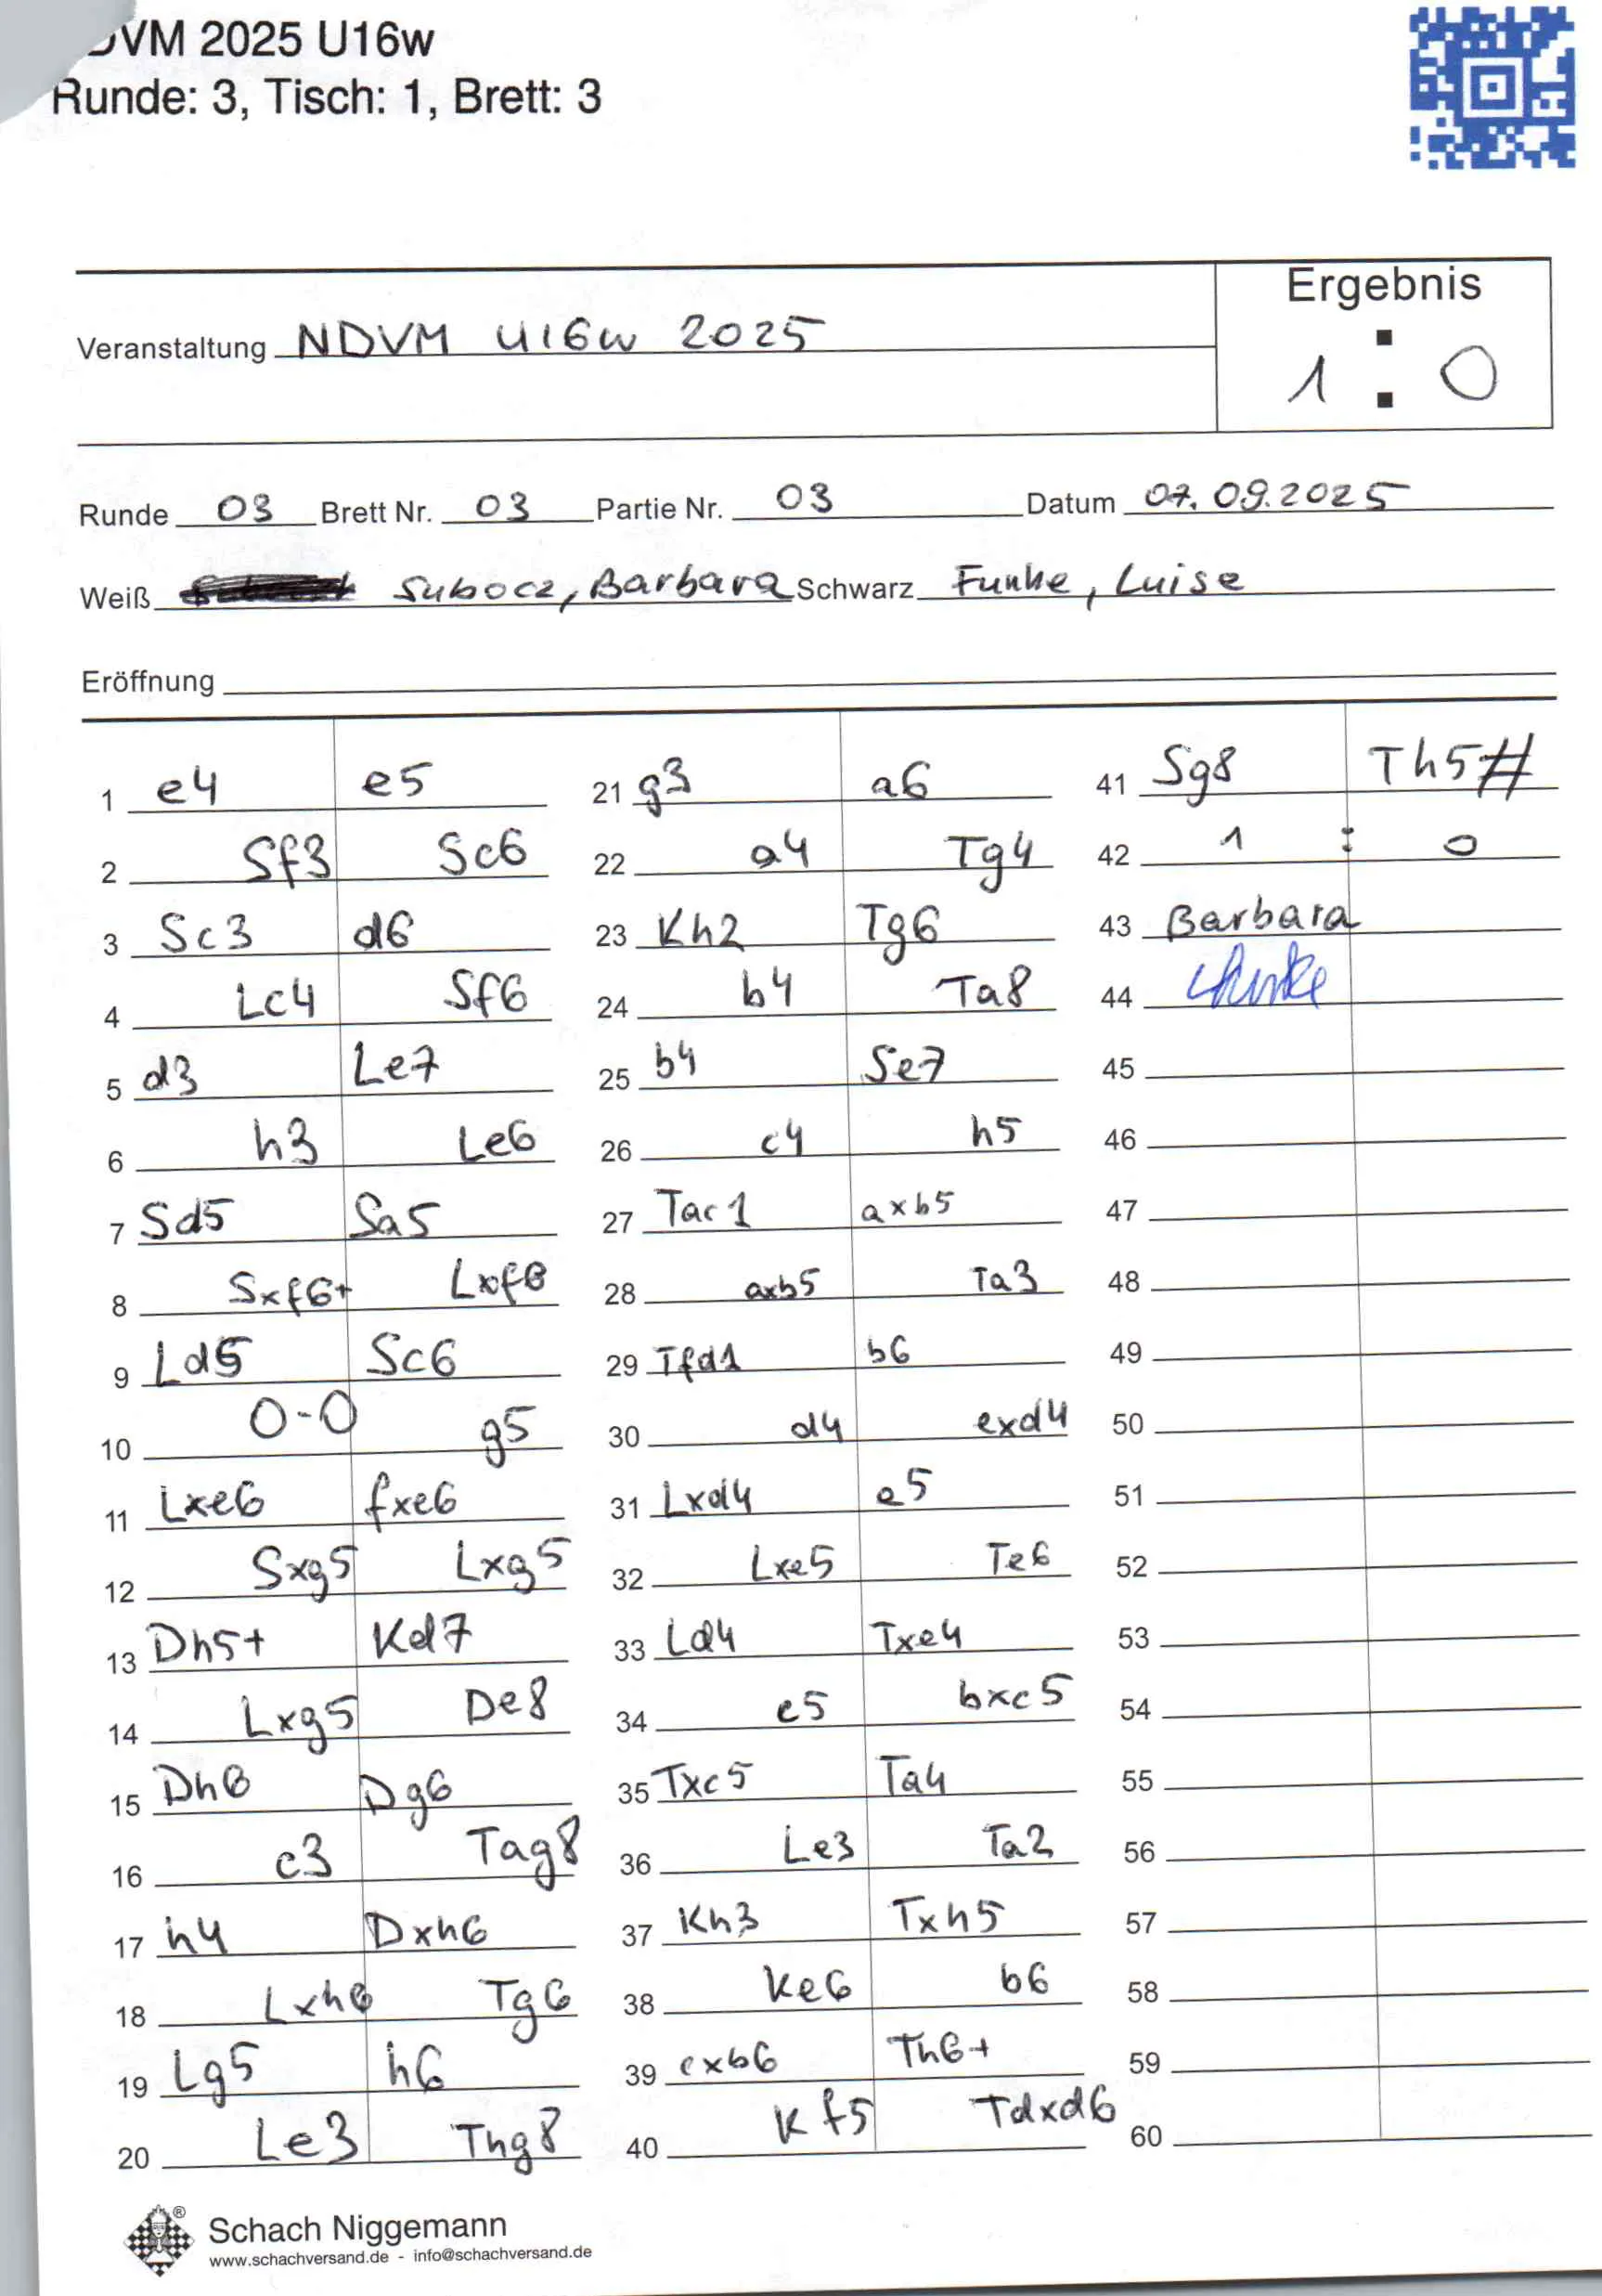 DVM 2025 U16w
Runde: 3, Tisch: 1, Brett: 3
Ergebnis
Veranstaltung NDVM U16w 2025
1 : 0
Runde 03 Brett Nr. 03 Partie Nr. 03 Datum 07.09.2025
Weiß Subocz, Barbara Schwarz Funke, Luise
Eröffnung
1 e4 e5
2 Sf3 Sc6
3 Sc3 d6
4 Lc4 Sf6
5 d3 Le7
6 h3 Le6
7 Sd5 Sa5
8 Sxf6+ Lxf6
9 Ld5 Sc6
10 0-0 g5
11 Lxe6 fxe6
12 Sxg5 Lxg5
13 Dh5+ Kd7
14 Lxg5 De8
15 Dh6 Dg6
16 c3 Tag8
17 h4 Dxh6
18 Lxh6 Tg6
19 Lg5 h6
20 Le3 Thg8
21 g3 a6
22 a4 Tg4
23 Kh2 Tg6
24 b4 Ta8
25 b4 Se7
26 c4 h5
27 Tac1 axb5
28 axb5 Ta3
29 Tfd1 b6
30 d4 exd4
31 Lxd4 e5
32 Lxe5 Te6
33 Ld4 Txe4
34 c5 bxc5
35 Txc5 Ta4
36 Le3 Ta2
37 Kh3 Txh5
38 Ke6 b6
39 cxb6 Th6+
40 Kf5 Tdxd6
41 Sg8 Th5#
42 1 : 0
43 Barbara
44
45
46
47
48
49
50
51
52
53
54
55
56
57
58
59
60
Schach Niggemann
www.schachversand.de - info@schachversand.de